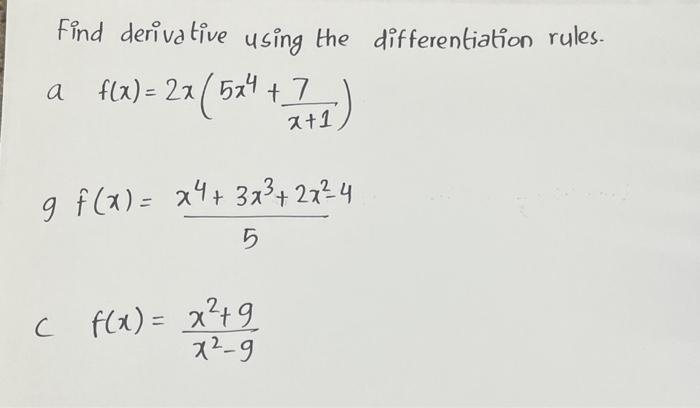 Find derivative using the differentiation rules.
a f(x) = 2x(5x⁴ + 7/(x+1))
g f(x) = (x⁴ + 3x³ + 2x² - 4)/5
c f(x) = (x² + 9)/(x² - 9)